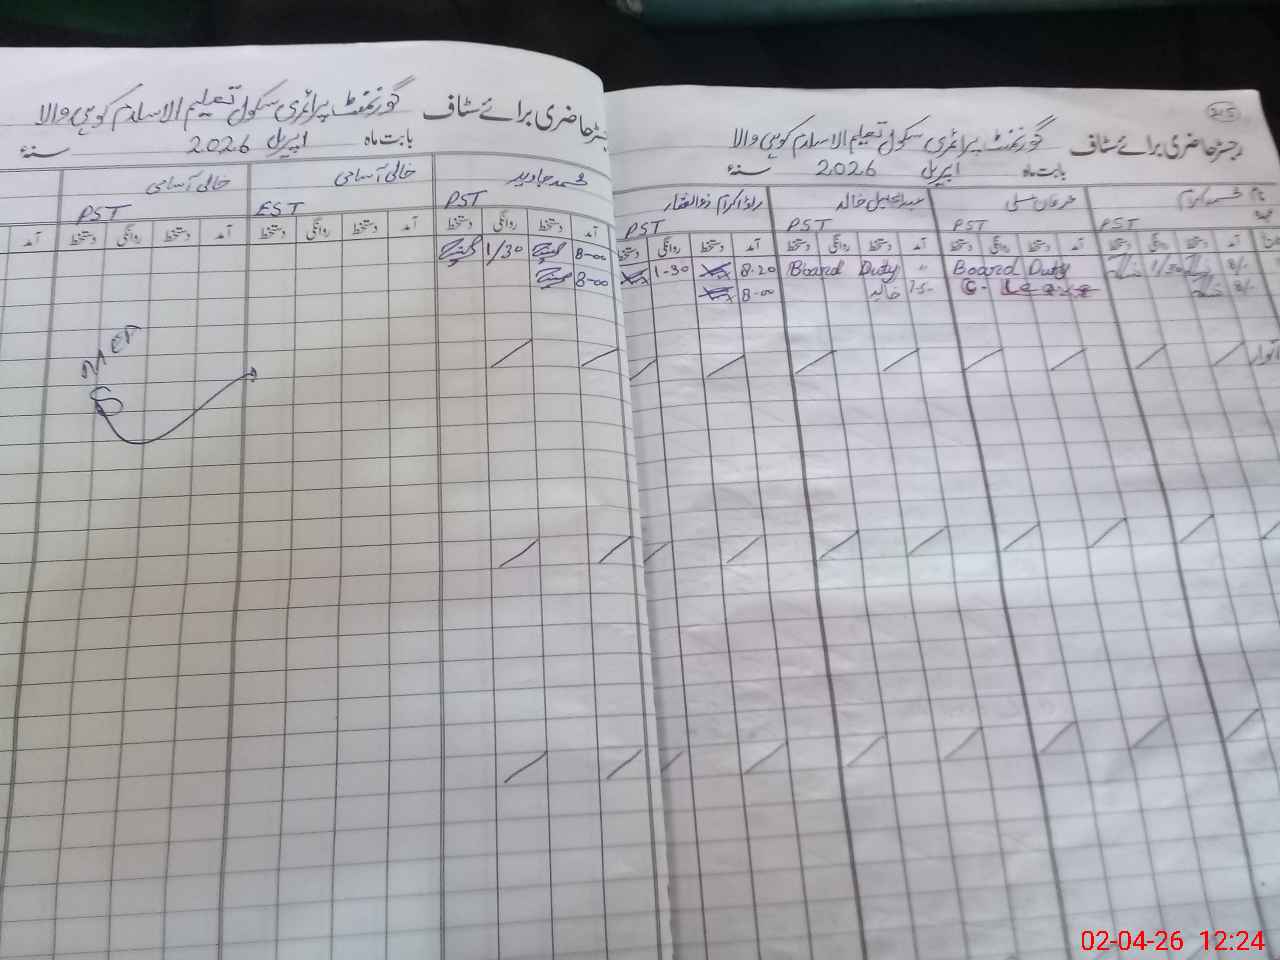 رجسٹر حاضری برائے سٹاف گورنمنٹ پرائمری سکول تعلیم الاسلام
بابت ماہ اپریل 2026 سنہء
نام محمد اکرام
PST PST PST PST
آمد دستخط روانگی دستخط آمد دستخط روانگی دستخط آمد دستخط روانگی دستخط آمد دستخط روانگی دستخط
8/- 1/30 Board Duty Board Duty 〃 8-20 1-30
8/- C. Leave 7-5- خالد 8-00
اتوار
رجسٹر حاضری برائے سٹاف گورنمنٹ پرائمری سکول تعلیم الاسلام
بابت ماہ اپریل 2026 سنہء
محمد جاوید خالی آسامی خالی آسامی
PST EST PST
آمد دستخط روانگی دستخط آمد دستخط روانگی دستخط آمد دستخط روانگی دستخط آمد
8-00 1/30
8-00
02-04-26 12:24